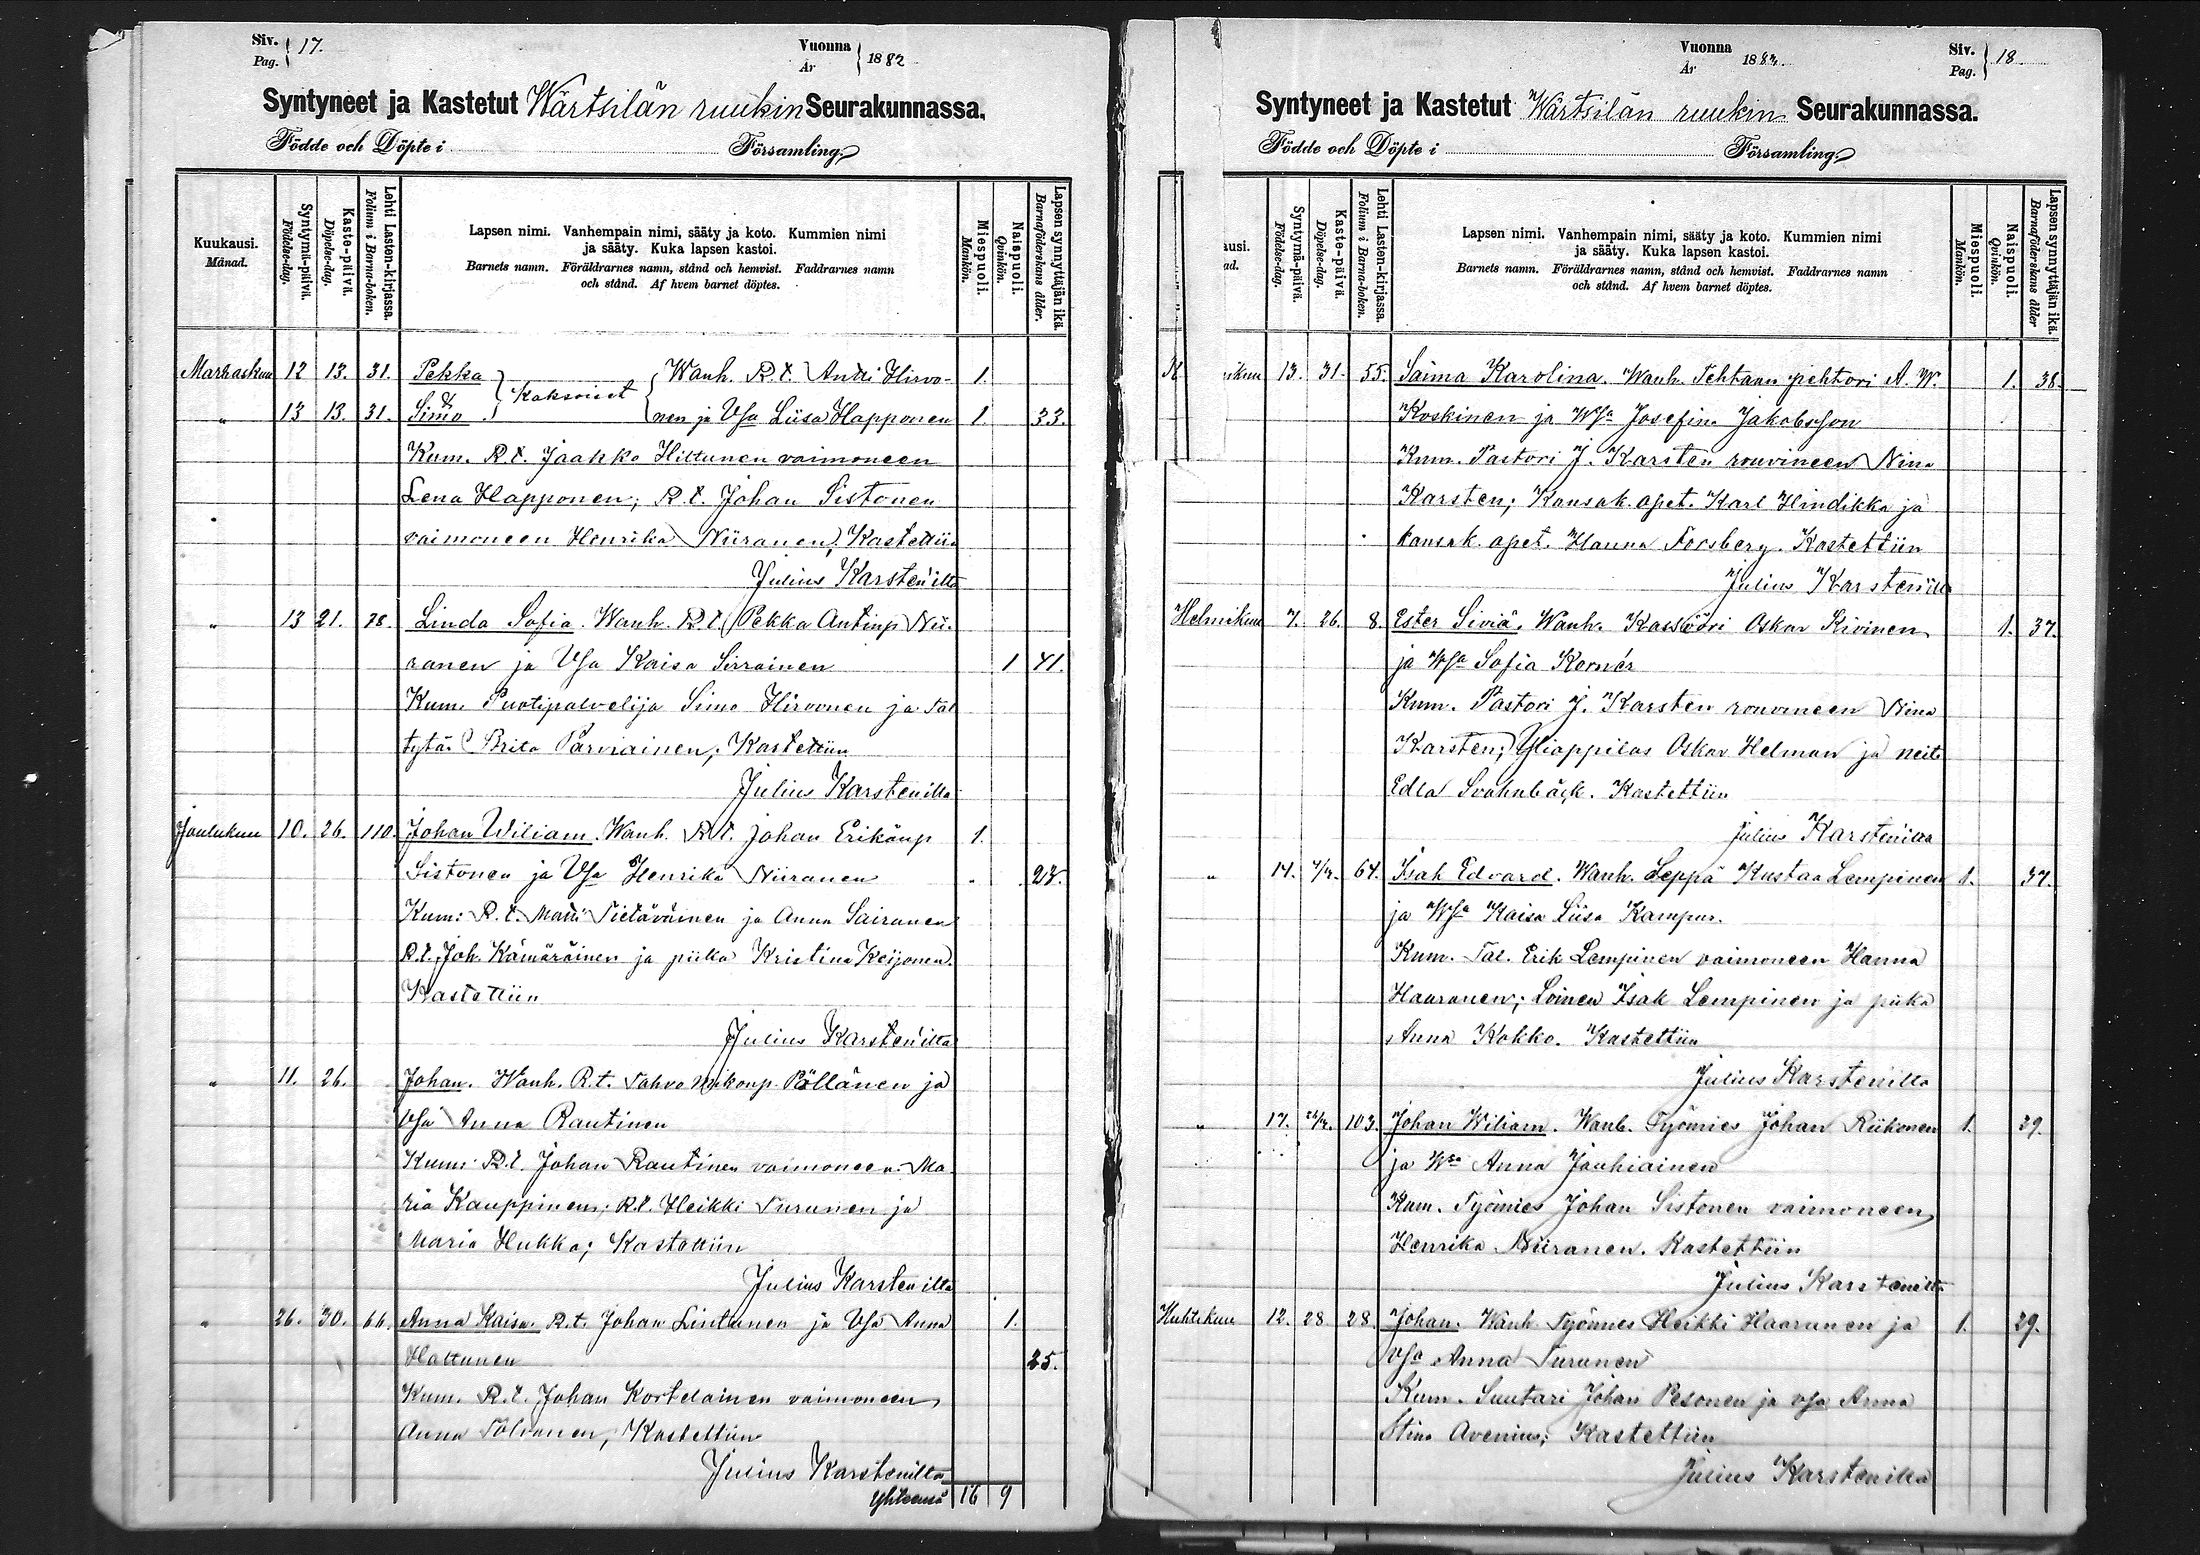 Siv. Pag. 17.
Vuonna År 1882
Syntyneet ja Kastetut Wärtsilän ruukin Seurakunnassa.
Födde och Döpte i Församling.
Kuukausi. Månad.
Syntymä-päivä. Födelse-dag.
Kaste-päivä. Döpelse-dag.
Lehti Lasten-kirjassa. Folium i Barna-boken.
Lapsen nimi. Vanhempain nimi, sääty ja koto. Kummien nimi
ja sääty. Kuka lapsen kastoi.
Barnets namn. Föräldrarnes namn, stånd och hemvist. Faddrarnes namn
och stånd. Af hvem barnet döptes.
Miespuoli. Mankön.
Naispuoli. Qvinkön.
Lapsen synnyttäjän ikä. Barnaföderskans ålder.
Marraskuu 12 13. 31. Pekka Kaksoiset Wanh. R.t. Antti Hirvo- 1.
" 13 13. 31. Simo nen ja Vsa Liisa Happonen 1. 33.
Kum. R.t. Jaakko Hiltunen vaimoneen
Lena Happonen; R.t. Johan Sistonen
vaimoneen Henrika Niiranen, Kastettiin
Julius Karsten'ilta
" 13 21. 78. Linda Sofia. Wanh. R.t. Pekka Antinp Nii-
ranen ja Vsa Kaisa Sirrainen 1 41.
Kum. Puotipalvelija Simo Hirvonen ja tal
tytär Brita Parviainen; Kastettiin
Julius Karstenilta
Joulukuu 10. 26. 110. Johan Wiliam. Wanh. R.t. Johan Erikänp 1.
Sistonen ja Vsa Henrika Niiranen 23.
Kum: R.t. Matti Tietäväinen ja Anna Sairanen
R.t. Joh. Kämäräinen ja piika Kristina Keijonen.
Kastettiin
Julius Karsten'ilta
" 11. 26. Johan. Wanh. R.t. Tahvo Pöllänen ja
Vsa Anna Rautinen
Kum: R.t. Johan Rautinen vaimoneen Ma-
ria Kauppinen; R.t. Heikki Turunen ja
Maria Hukka; Kastettiin
Julius Karstenilta
" 26. 30. 66. Anna Kaisa. R.t. Johan Lintunen ja Vsa Anna 1.
Hattunen 25.
Kum. R.t. Johan Kortelainen vaimoneen
Anna Tolvanen, Kastettiin
Julius Karstenilta
Yhteensä 16 9
Vuonna År 1883.
Siv. Pag. 18.
Syntyneet ja Kastetut Wärtsilän ruukin Seurakunnassa.
Födde och Döpte i Församling.
ausi. ad.
Syntymä-päivä. Födelse-dag.
Kaste-päivä. Döpelse-dag.
Lehti Lasten-kirjassa. Folium i Barna-boken.
Lapsen nimi. Vanhempain nimi, sääty ja koto. Kummien nimi
ja sääty. Kuka lapsen kastoi.
Barnets namn. Föräldrarnes namn, stånd och hemvist. Faddrarnes namn
och stånd. Af hvem barnet döptes.
Miespuoli. Mankön.
Naispuoli. Qvinkön.
Lapsen synnyttäjän ikä. Barnaföderskans ålder
ikuu 13. 31. 55. Saima Karolina. Wanh. Tehtaan pehtori A. W. 1. 38.
Koskinen ja Wsa Josefina Jakobsson
Kum. Pastori J. Karsten rouvineen Nina
Karsten; Kansak. opet. Karl Hindikka ja
kansak. opet. Hanna Forsberg. Kastettiin
Julius Karsten'ilta
Helmikuu 7. 26. 8. Ester Siviä. Wanh. Kassööri Oskar Kivinen 1. 37.
ja Wsa Sofia Kornér
Kum. Pastori J. Karsten rouvineen Nina
Karsten; Ylioppilas Oskar Helman ja neiti
Edla Svahnbäck. Kastettiin
Julius Karsten'ilta
" 14. 64. Isak Edvard. Wanh. Seppä Kustaa Lempinen 1. 37.
ja Wsa Kaisa Liisa Kampur.
Kum. Tal. Erik Lempinen vaimoneen Hanna
Haaranen; Loinen Isak Lempinen ja piika
Anna Kokko. Kastettiin
Julius Karstenilta
" 17. 103. Johan Wiliam. Wanh. Työmies Johan Riikonen 1. 39.
ja Wsa Anna Jauhiainen
Kum. Työmies Johan Sistonen vaimoneen
Henrika Niiranen. Kastettiin
Julius Karstenilta
Huhtikuu 12. 28 28. Johan. Wanh Työmies Heikki Haaranen ja 1. 29.
Vsa Anna Turunen
Kum. Suutari Johan Pesonen ja vsa Anna
Stina Avenius; Kastettiin
Julius Karstenilta